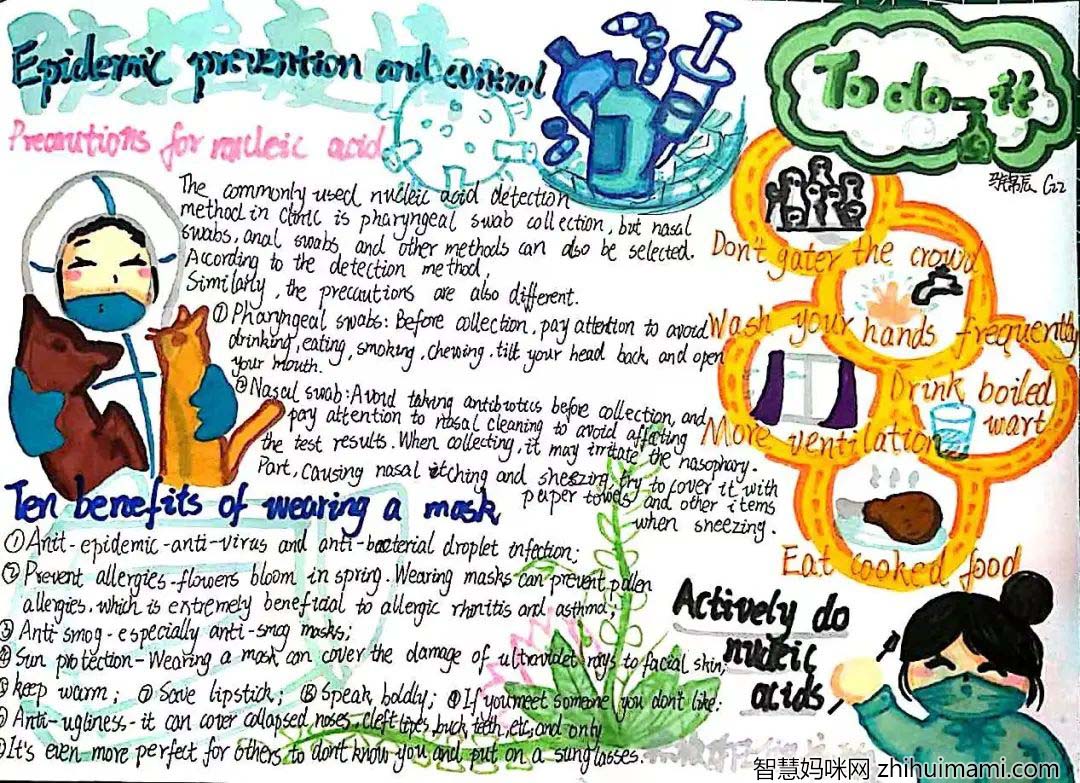 Epidemic prevention and control
Precautions for nucleic acid
The commonly used nucleic acid detection
method in clinic is pharyngeal swab collection, but nasal
swabs, anal swabs, and other methods can also be selected.
According to the detection method,
Similarly, the precautions are also different.
① Pharyngeal swabs: Before collection, pay attention to avoid
drinking, eating, smoking, chewing. tilt your head back and open
your mouth.
② Nasal swab: Avoid taking antibiotics before collection, and
pay attention to nasal cleaning to avoid affecting
the test results. When collecting, it may irritate the nasophary.
Part, causing nasal itching and sneezing, try to cover it with
paper towels and other items
when sneezing.
Ten benefits of wearing a mask
① Anit-epidemic-anti-virus and anti-bacterial droplet infection;
② Prevent allergies-flowers bloom in spring. Wearing masks can prevent pollen
allergies, which is extremely beneficial to allergic rhinitis and asthma;
③ Anti smog-especially anti-smog masks;
④ Sun protection-Wearing a mask can cover the damage of ultraviolet rays to facial skin;
keep warm; ⑦ Save lipstick; ⑧ Speak boldly; If you meet someone you don't like:
Anti-ugliness-it can cover collapsed noses, cleft lipes, buck teeth, etc, and only
It's even more perfect for others to don't know you and put on a sunglasses.
To do it
C22
Don't gater the crowd
Wash your hands frequently
Drink boiled
wart
More ventilation
Eat cooked food
Actively do
nucleic
acids
智慧妈咪网 zhihuimami.com